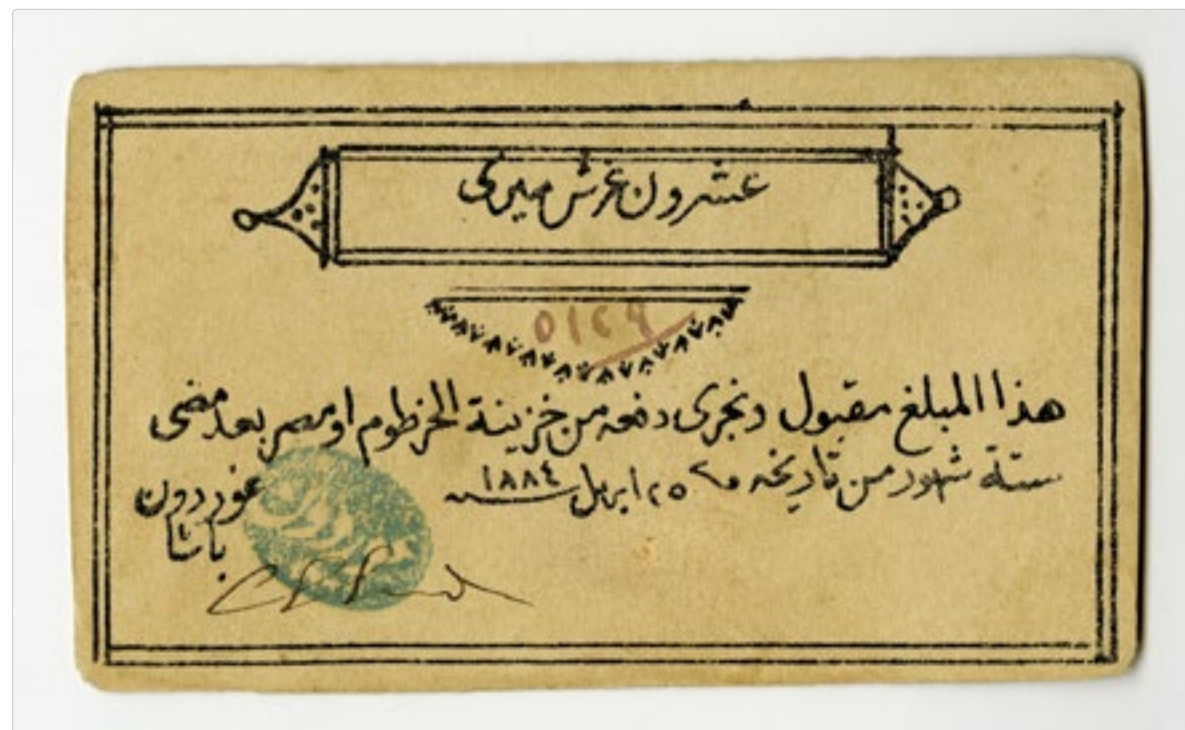 عشرون غرش ميرى
٥١٢٩
هذا المبلغ مقبول ونجرى دفعه من خزينة الخرطوم او مصر بعد مضى
ستة شهور من تاريخه ٢٥ ابريل سنة ١٨٨٤
غوردون
باشا